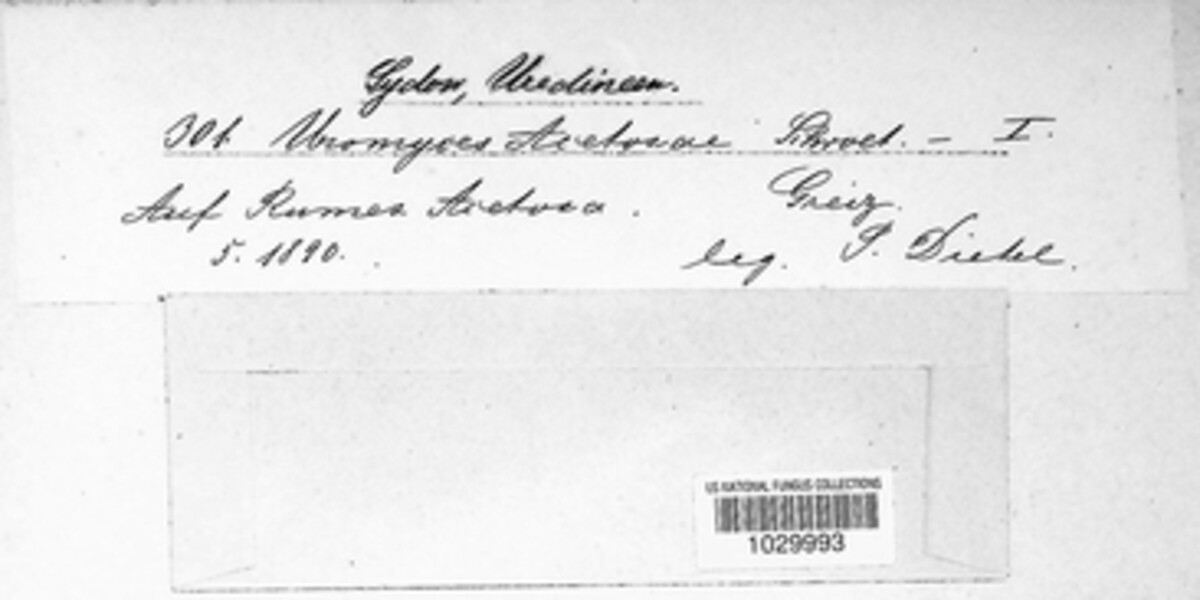 Sydow, Uredineen.
301. Uromyces Acetosae Schroet. – I.
Auf Rumex Acetosa. Greiz.
5. 1890. leg. P. Dietel.
US NATIONAL FUNGUS COLLECTIONS
1029993